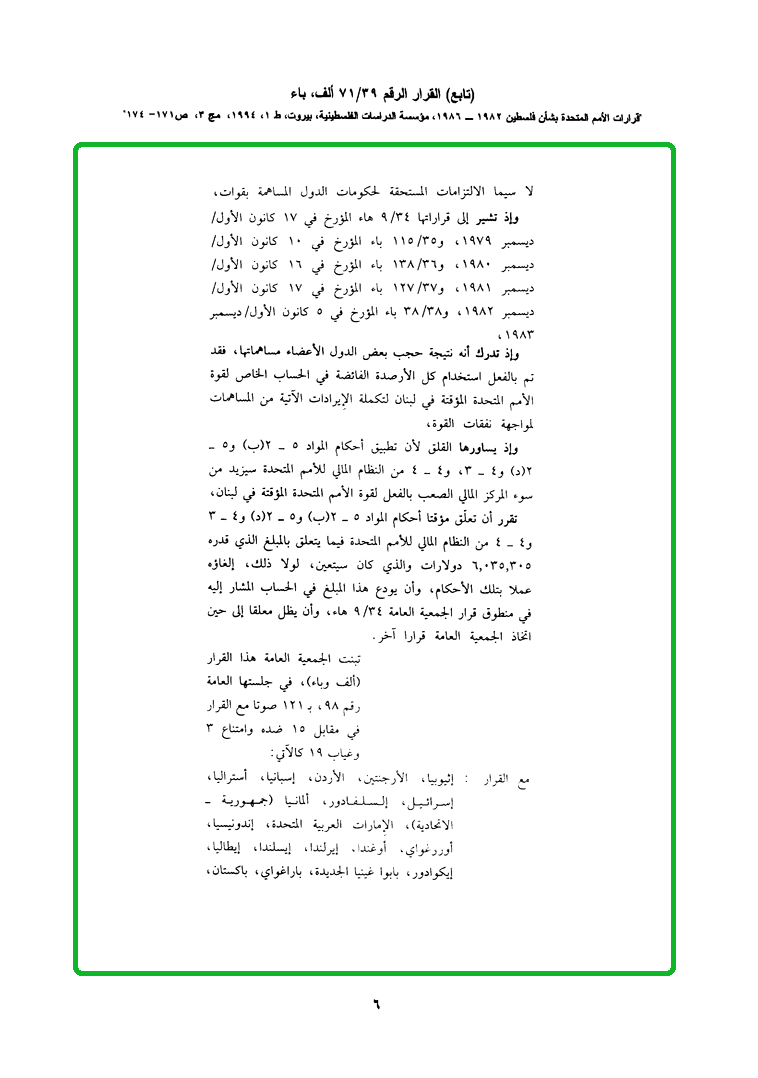 (تابع) القرار الرقم ٧١/٣٩ ألف، باء
"قرارات الأمم المتحدة بشأن فلسطين ١٩٨٢ ــ ١٩٨٦، مؤسسة الدراسات الفلسطينية، بيروت، ط ١، ١٩٩٤، مج ٣، ص١٧١- ١٧٤"
لا سيما الالتزامات المستحقة لحكومات الدول المساهمة بقوات،
وإذ تشير إلى قراراتها ٩/٣٤ هاء المؤرخ في ١٧ كانون الأول/
ديسمبر ١٩٧٩، و١١٥/٣٥ باء المؤرخ في ١٠ كانون الأول/
ديسمبر ١٩٨٠، و١٣٨/٣٦ باء المؤرخ في ١٦ كانون الأول/
ديسمبر ١٩٨١، و١٢٧/٣٧ باء المؤرخ في ١٧ كانون الأول/
ديسمبر ١٩٨٢، و٣٨/٣٨ باء المؤرخ في ٥ كانون الأول/ديسمبر
١٩٨٣،
وإذ تدرك أنه نتيجة حجب بعض الدول الأعضاء مساهماتها، فقد
تم بالفعل استخدام كل الأرصدة الفائضة في الحساب الخاص لقوة
الأمم المتحدة المؤقتة في لبنان لتكملة الإيرادات الآتية من المساهمات
لمواجهة نفقات القوة،
وإذ يساورها القلق لأن تطبيق أحكام المواد ٥ ــ ٢(ب) و٥ ــ
٢(د) و٤ ــ ٣، و٤ ــ ٤ من النظام المالي للأمم المتحدة سيزيد من
سوء المركز المالي الصعب بالفعل لقوة الأمم المتحدة المؤقتة في لبنان،
تقرر أن تعلّق مؤقتا أحكام المواد ٥ ــ ٢(ب) و٥ ــ ٢(د) و٤ ــ ٣
و٤ ــ ٤ من النظام المالي للأمم المتحدة فيما يتعلق بالمبلغ الذي قدره
٦,٠٣٥,٣٠٥ دولارات والذي كان سيتعين، لولا ذلك، إلغاؤه
عملا بتلك الأحكام، وأن يودع هذا المبلغ في الحساب المشار إليه
في منطوق قرار الجمعية العامة ٩/٣٤ هاء، وأن يظل معلقا إلى حين
اتخاذ الجمعية العامة قرارا آخر.
تبنت الجمعية العامة هذا القرار
(ألف وباء)، في جلستها العامة
رقم ٩٨، بـ ١٢١ صوتا مع القرار
في مقابل ١٥ ضده وامتناع ٣
وغياب ١٩ كالآتي:
مع القرار : إثيوبيا، الأرجنتين، الأردن، إسبانيا، أستراليا،
إسرائيل، إلسلفادور، ألمانيا (جمهورية ــ
الاتحادية)، الإمارات العربية المتحدة، إندونيسيا،
أوروغواي، أوغندا، إيرلندا، إيسلندا، إيطاليا،
إيكوادور، بابوا غينيا الجديدة، باراغواي، باكستان،
٦